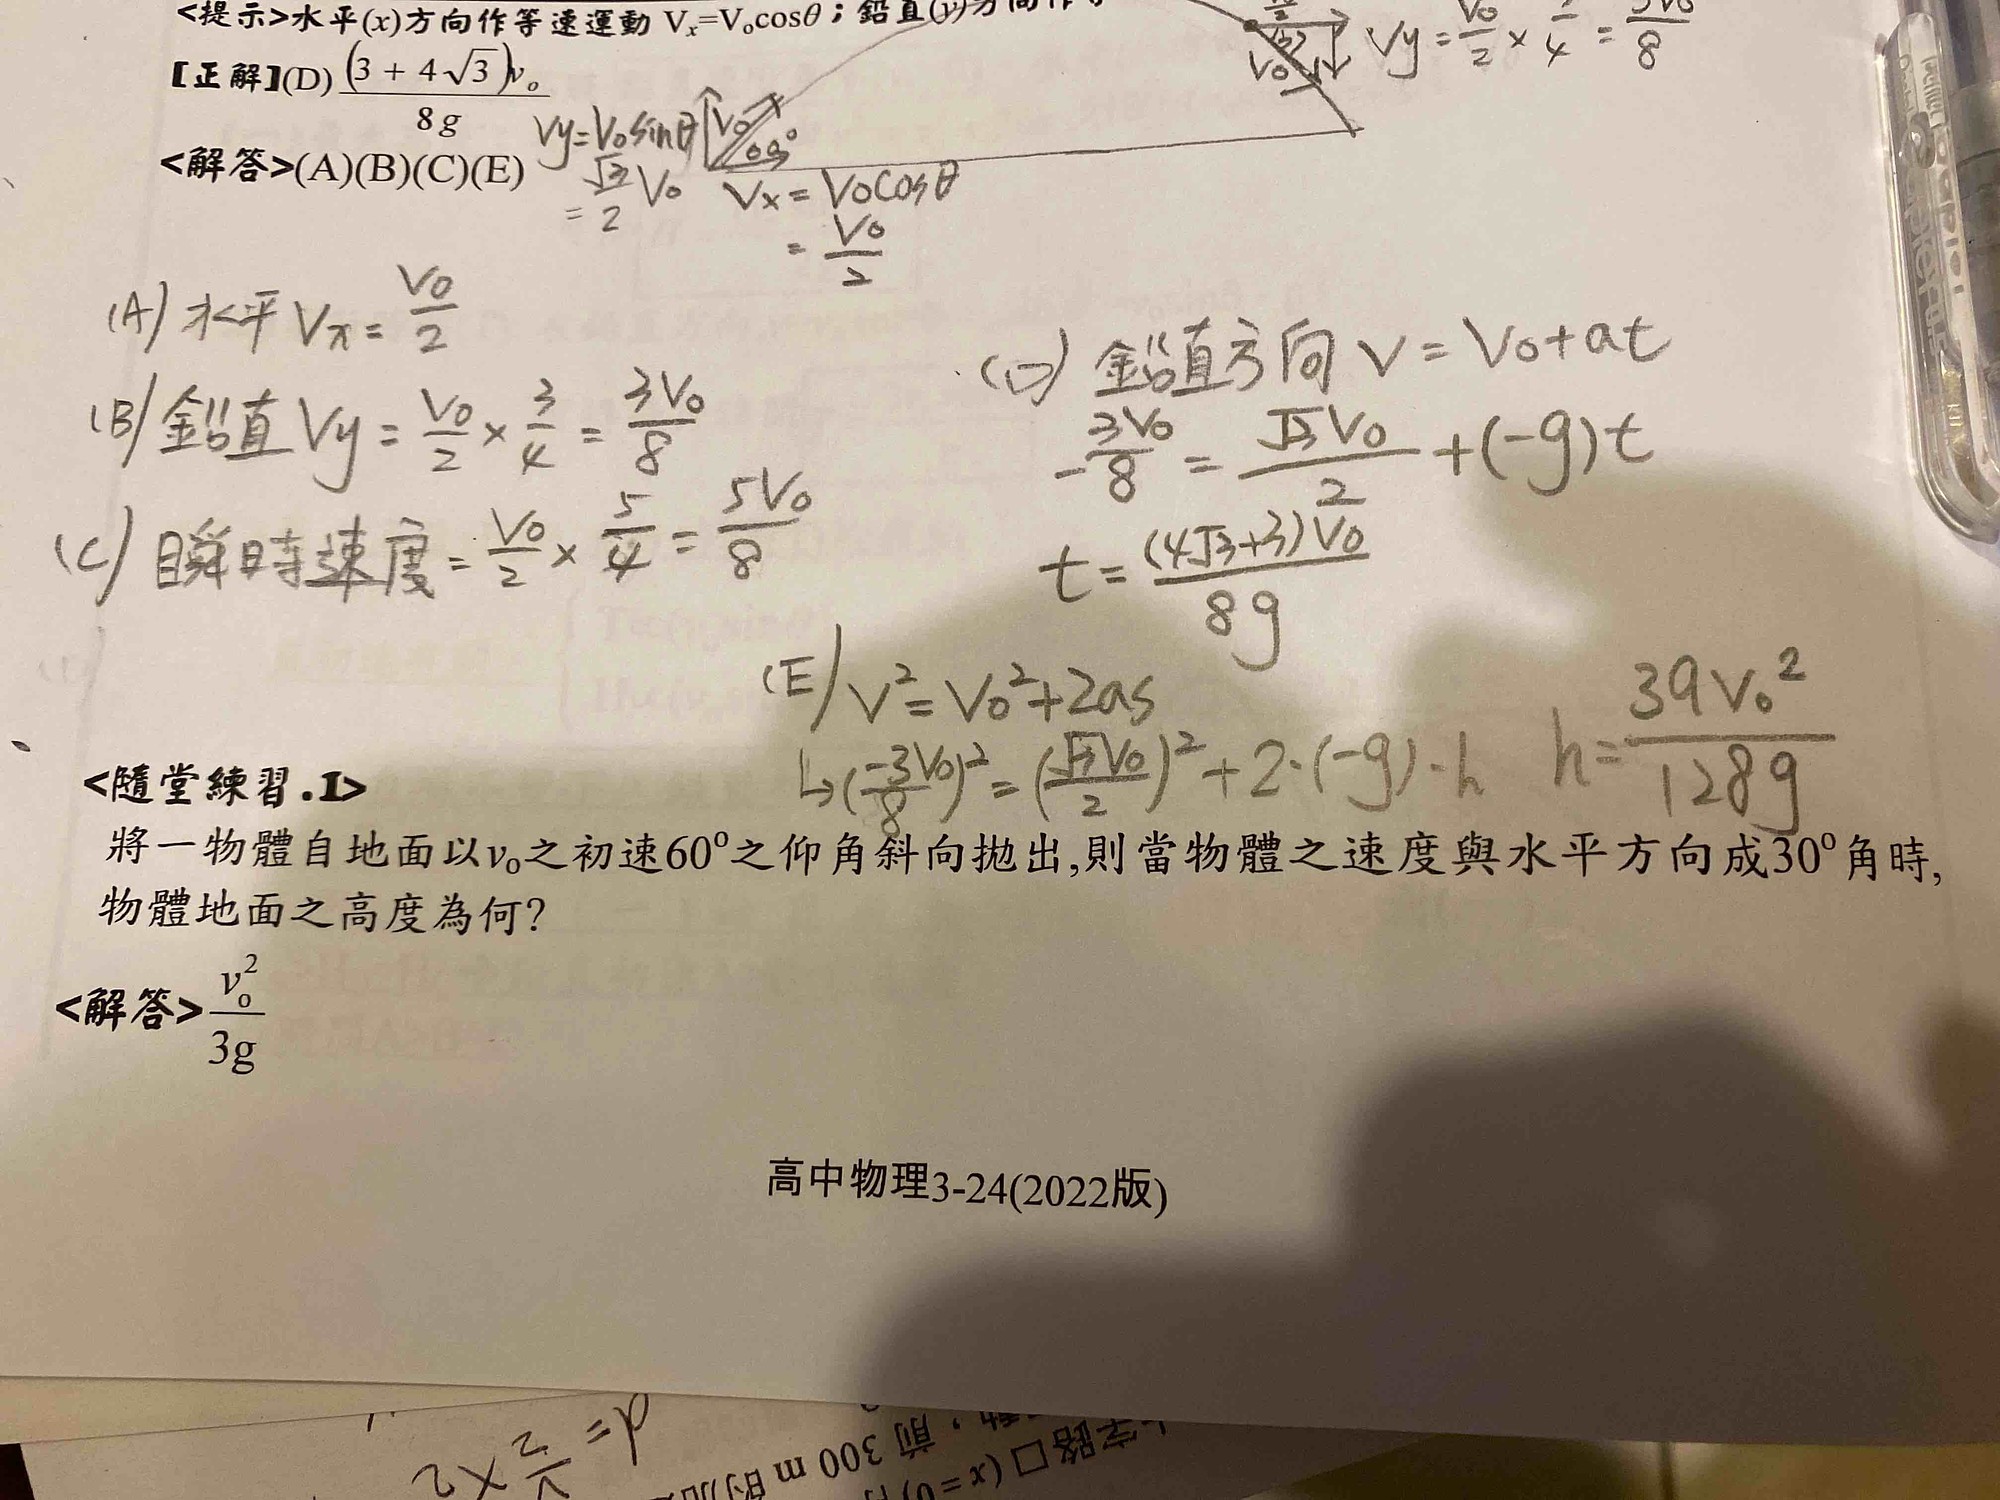 <提示>水平(x)方向作等速運動 Vₓ=V₀cosθ；鉛直(y)方向作等
Vy = V₀/2 × 3/4 = 3V₀/8
【正解】(D) (3 + 4√3)v₀ / 8g
Vy=V₀sinθ
= √3/2 V₀
V₀
60°
<解答>(A)(B)(C)(E)
Vx = V₀cosθ
= V₀/2
(A) 水平 Vx = V₀/2
(B) 鉛直 Vy = V₀/2 × 3/4 = 3V₀/8
(C) 瞬時速度 = V₀/2 × 5/4 = 5V₀/8
(D) 鉛直方向 V = V₀+at
-3V₀/8 = √3V₀/2 + (-g)t
t = (4√3+3)V₀ / 8g
(E) V² = V₀²+2as
↳ (-3V₀/8)² = (√3V₀/2)² + 2·(-g)·h h = 39V₀²/128g
<隨堂練習.1>
將一物體自地面以v₀之初速60°之仰角斜向拋出,則當物體之速度與水平方向成30°角時,
物體地面之高度為何?
<解答> v₀²/3g
高中物理3-24(2022版)
d = 1/2 × 2
前 300 m 的
字路口 (x = 0)